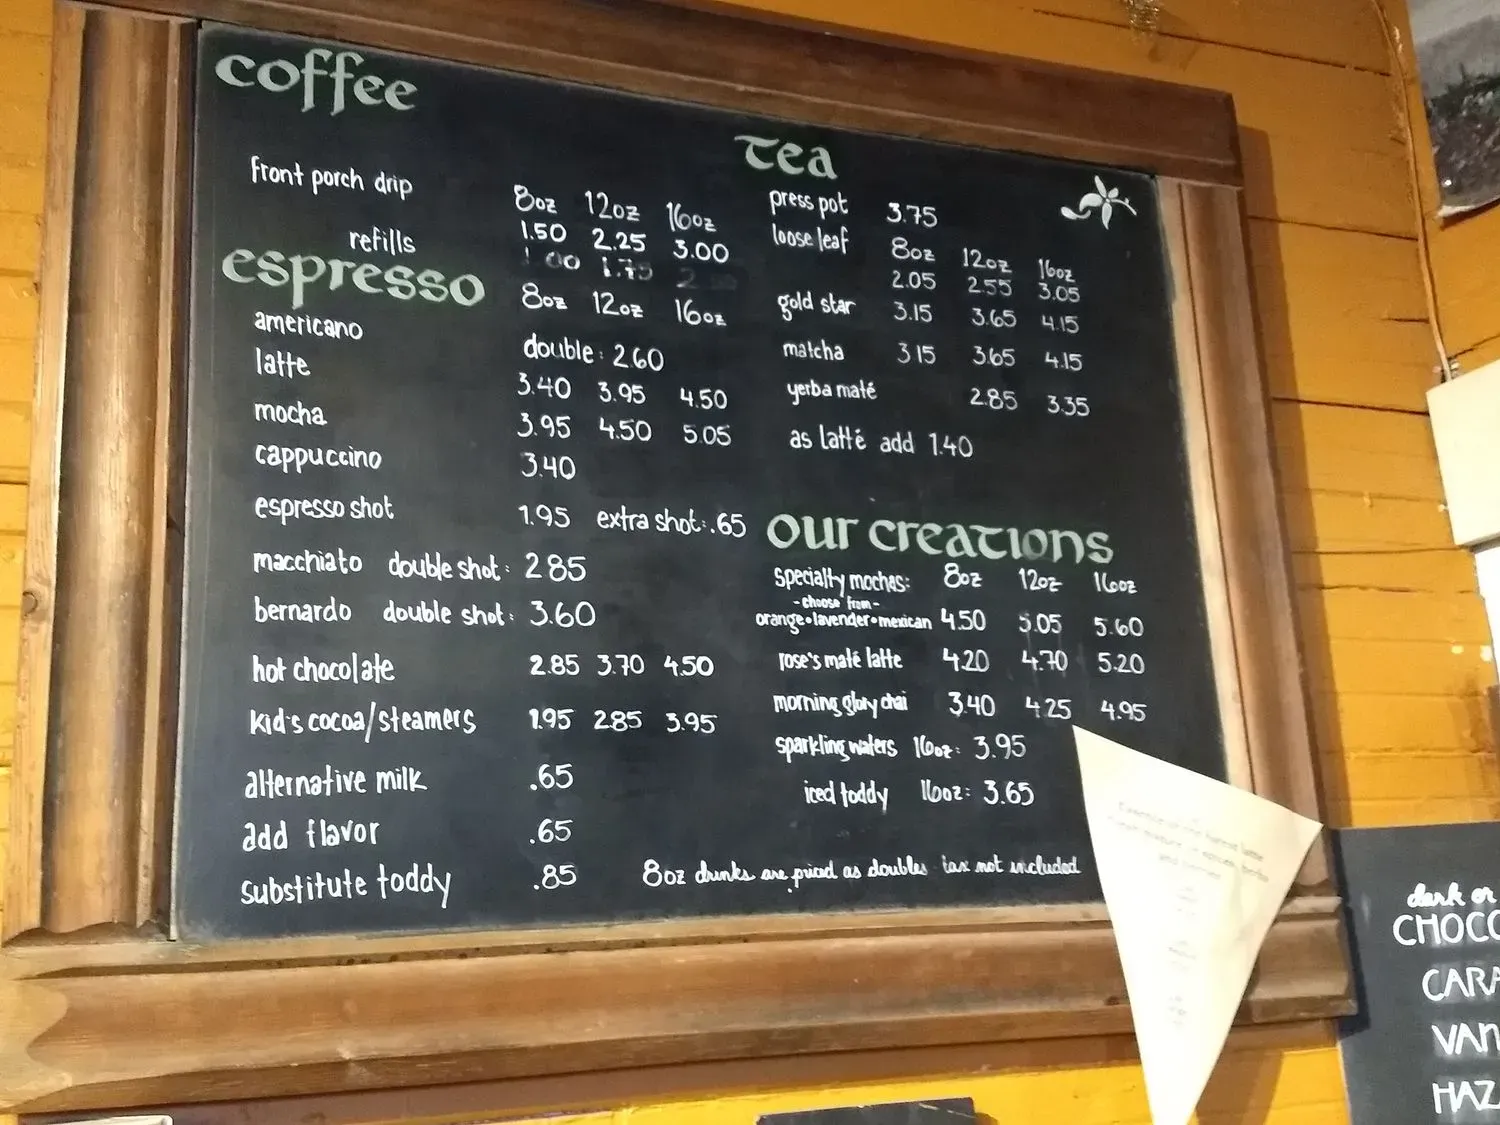 coffee
front porch drip
8oz 12oz 16oz
1.50 2.25 3.00
refills
1.00 1.75
espresso
8oz 12oz 16oz
americano double: 2.60
latte 3.40 3.95 4.50
mocha 3.95 4.50 5.05
cappuccino 3.40
espresso shot 1.95 extra shot: .65
macchiato double shot: 2 85
bernardo double shot: 3.60
hot chocolate 2.85 3.70 4.50
kid's cocoa/steamers 1.95 2.85 3.95
alternative milk .65
add flavor .65
substitute toddy .85
tea
press pot 3.75
loose leaf 8oz 12oz 16oz
2.05 2.55 3.05
gold star 3.15 3.65 4.15
matcha 3 15 3.65 4.15
yerba maté 2.85 3.35
as latté add 1.40
our creations
specialty mochas: 8oz 12oz 16oz
- choose from -
orange • lavender • mexican 4.50 5.05 5.60
rose's maté latte 4.20 4.70 5.20
morning glory chai 3.40 4.25 4.95
sparkling waters 16oz: 3.95
iced toddy 16oz: 3.65
8oz drinks are priced as doubles tax not included
dark or
CHOCO
CARA
VAN
HAZ